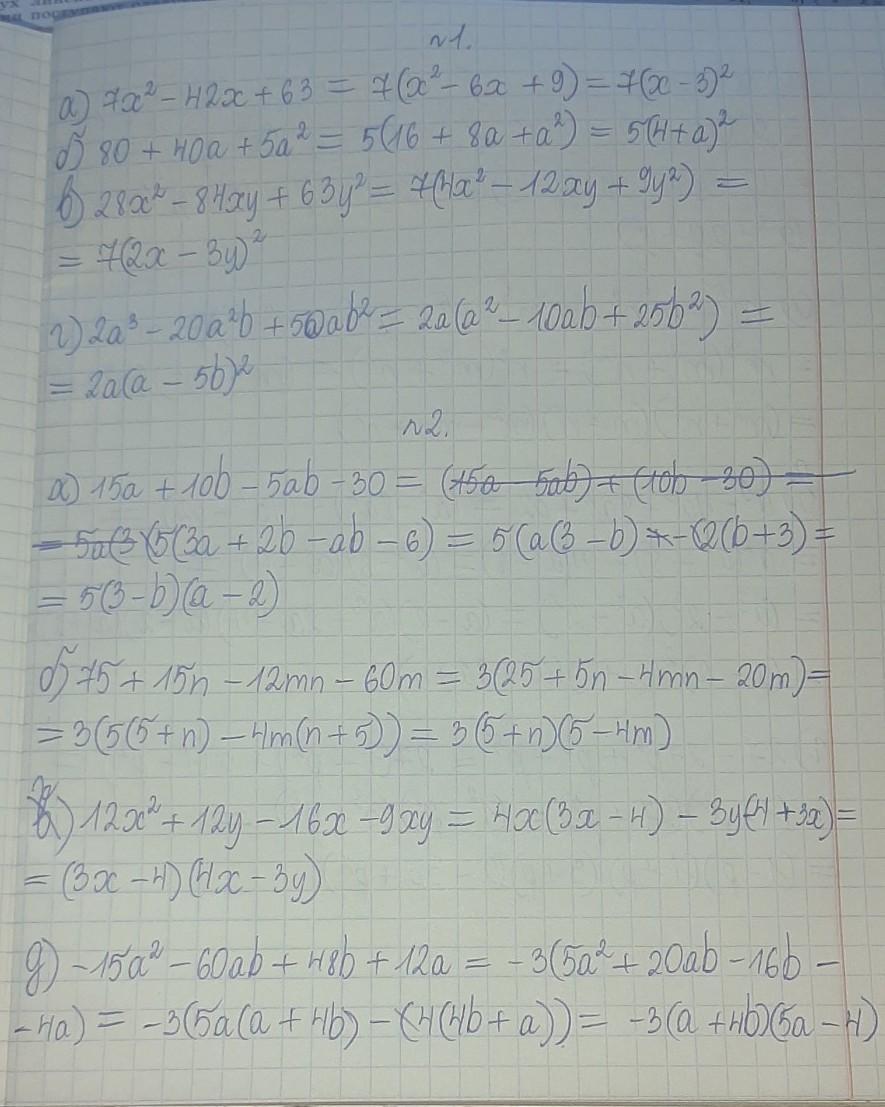 n1.
а) 7x² - 42x + 63 = 7(x² - 6x + 9) = 7(x - 3)²
б) 80 + 40a + 5a² = 5(16 + 8a + a²) = 5(4+a)²
в) 28x² - 84xy + 63y² = 7(4x² - 12xy + 9y²) =
= 7(2x - 3y)²
г) 2a³ - 20a²b + 50ab² = 2a(a² - 10ab + 25b²) =
= 2a(a - 5b)²
n2.
а) 15a + 10b - 5ab - 30 = (15a - 5ab) + (10b - 30) =
= 5a(3 (5(3a + 2b - ab - 6) = 5(a(3 - b) + - (2(b+3) =
= 5(3-b)(a - 2)
б) 75 + 15n - 12mn - 60m = 3(25 + 5n - 4mn - 20m) =
= 3(5(5+n) - 4m(n+5)) = 3(5+n)(5-4m)
12x² + 12y - 16x - 9xy = 4x(3x - 4) - 3y(-4 + 3x) =
= (3x - 4)(4x - 3y)
д) -15a² - 60ab + 48b + 12a = -3(5a² + 20ab - 16b -
- 4a) = -3(5a(a + 4b) - (4(4b + a)) = -3(a + 4b)(5a - 4)